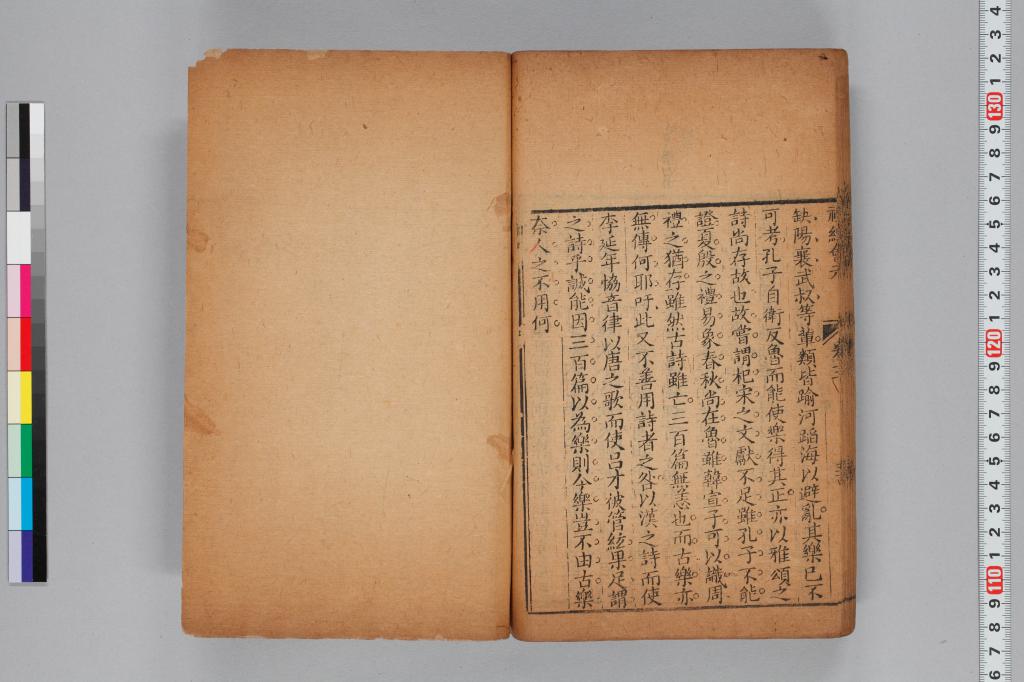 缺陽襄武叔等輩類皆踰河蹈海以避亂其樂已不
可考孔子自衛反魯而能使樂得其正亦以雅頌之
詩尚存故也故嘗謂杞宋之文獻不足雖孔子不能
證夏殷之禮易象春秋尚在魯雖韓宣子可以識周
禮之猶存雖然古詩雖亡三百篇無恙也而古樂亦
無傳何耶吁此又不善用詩者之咎以漢之詩而使
李延年協音律以唐之歌而使呂才被管絃果足謂
之詩乎誠能因三百篇以為樂則今樂豈不由古樂
奈人之不用何
4
3
2
1
130
9
8
7
6
5
4
3
2
1
120
9
8
7
6
5
4
3
2
1
110
9
8
7
6